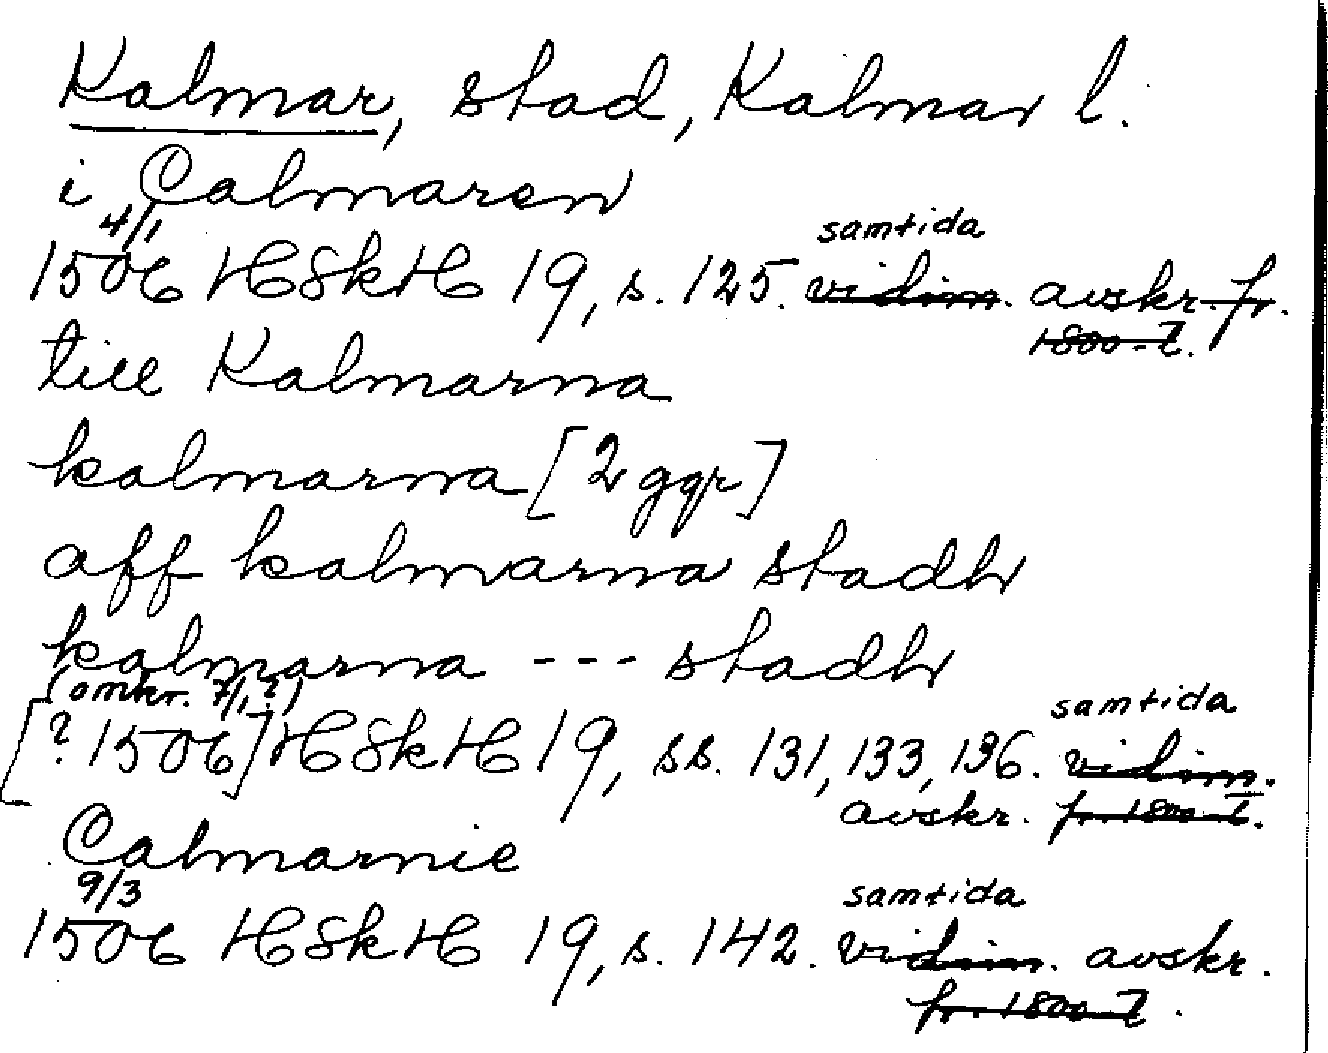 Kalmar, stad, Kalmar l.
i Calmaren
4/1 samtida
1506 HSkH 19, s. 125. vidim. avskr. fr.
1800-t.
till Kalmarna
kalmarna [2 ggr]
aff kalmarna stadh
kalmarna --- stadh
(omkr. 7/1?) samtida
[? 1506] HSkH 19, ss. 131, 133, 136. vidim.
avskr. fr. 1800-t.
Calmarnie
9/3 samtida
1506 HSkH 19, s. 142. vidim. avskr.
fr. 1800-t.